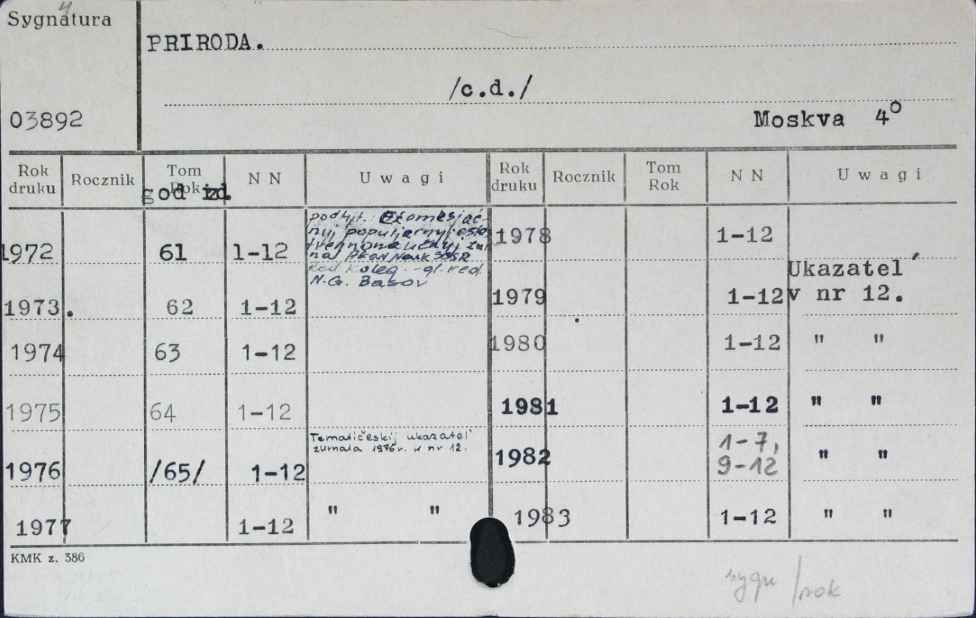 Sygnatura
PRIRODA.
/c.d./
03892
Moskva 4°
Rok druku Rocznik Tom Rok N N Uwagi Rok druku Rocznik Tom Rok N N Uwagi
god izd.
1972 61 1-12 1978 1-12
podtyt.: Ežemesjač-
nyj populjarnyj
nyj žur
nal Akad. Nauk SSSR
Red. koleg. -gl. red.
N.G. Basov
1973. 62 1-12 1979 1-12 Ukazatel'
v nr 12.
1974 63 1-12 1980 1-12 " "
1975 64 1-12 1981 1-12 " "
1976 /65/ 1-12 Tematičeskij ukazatel'
žurnala 1976 r. v nr 12.
1982 1-7,
9-12 " "
1977 1-12 " " 1983 1-12 " "
KMK z. 386
sygn/rok